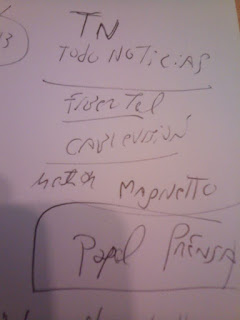 13
TN
TODO NOTICIAS
FiberTel
CABLEVISIÓN
Hector MAGNETTO
Papel PRENSA